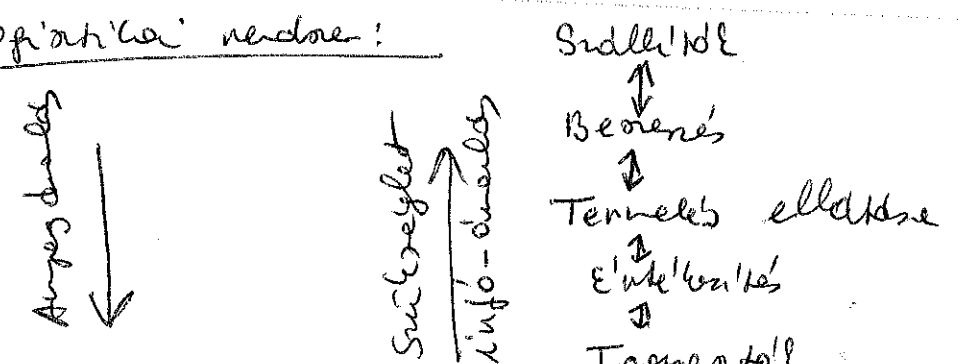 logisztikai rendszer:
Anyagáramlás
Szükséglet
infó-áramlás
Szállítók
Beszerzés
Termelés ellátása
Értékesítés